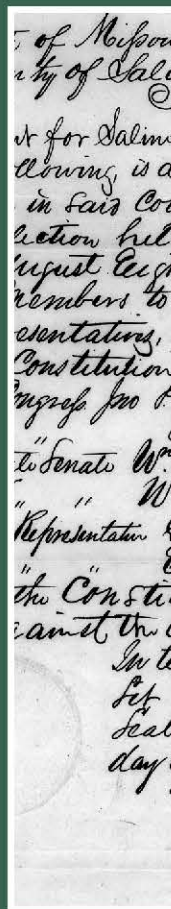 of Missou
nty of Sali
for Salin
llowing, is a
in said Cou
lection hel
ugust Eigh
members to
esentatives,
Constitution
ongress Jno
te Senate Wm
" " W
" Representative
" "
the Consti
gainst the
In te
Set
Seal
day